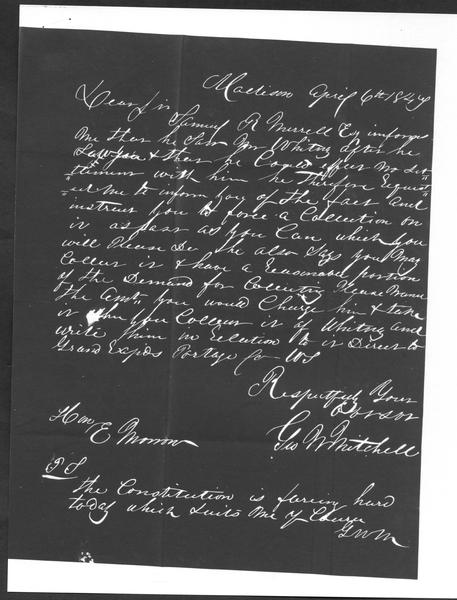 Madison April 6th 1846
Dear Sir
Samuel R Murrell Esq informs
me that he saw Mr Whitny after he
saw you & that he could effect no set
tlement with him he Therefore Request
ed me to inform you of the fact and
instruct you to force a Collection on
it as fast as you Can which you
will Please Do he also Says you May
Collect it & have a Reasonable portion
of the Demand for Collecting Please Name
the amt you would Charge him & take
it when you Collect it of Whitny and
write him in relation to it Direct to
Grand Portage Co WT
Respectfuly Your
Obt Svt
Geo W Mitchell
Hon E
P S
The Constitution is faring hard
today which suits me of Course
GWM